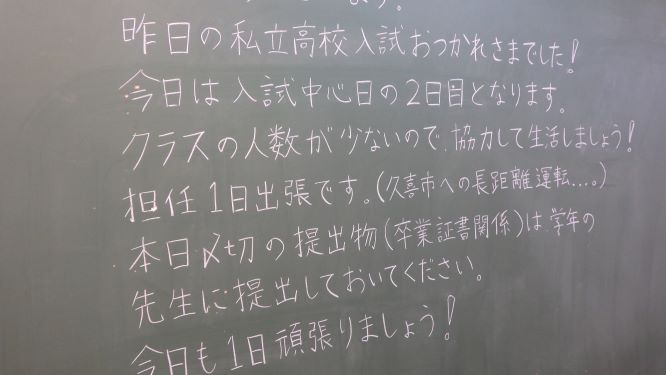 昨日の私立高校入試おつかれさまでした!
今日は入試中心日の2日目となります。
クラスの人数が少ないので、協力して生活しましょう!
担任1日出張です。(久喜市への長距離運転...。)
本日〆切の提出物(卒業証書関係)は、学年の
先生に提出しておいてください。
今日も1日頑張りましょう!